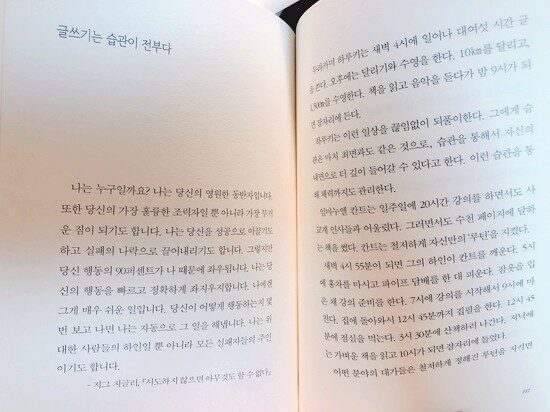 글쓰기는 습관이 전부다
나는 누구일까요? 나는 당신의 영원한 동반자입니다.
또한 당신의 가장 훌륭한 조력자일 뿐 아니라 가장 무거
운 짐이 되기도 합니다. 나는 당신을 성공으로 이끌기도
하고 실패의 나락으로 끌어내리기도 합니다. 그렇지만
당신 행동의 90퍼센트가 나 때문에 좌우됩니다. 나는 당
신의 행동을 빠르고 정확하게 좌지우지합니다. 나에겐
그게 매우 쉬운 일입니다. 당신이 어떻게 행동하는지 몇
번 보고 나면 나는 자동으로 그 일을 해냅니다. 나는 위
대한 사람들의 하인일 뿐 아니라 모든 실패자들의 주인
이기도 합니다.
- 지그 지글러, 『시도하지 않으면 아무것도 할 수 없다』
무라카미 하루키는 새벽 4시에 일어나 대여섯 시간 글
을 쓴다. 오후에는 달리기와 수영을 한다. 10km를 달리고,
1,500m를 수영한다. 책을 읽고 음악을 듣다가 밤 9시가 되
면 잠자리에 든다.
하루키는 이런 일상을 끊임없이 되풀이한다. 그에게 습
관은 마치 최면과도 같은 것으로, 습관을 통해서 자신의
내면으로 더 깊이 들어갈 수 있다고 한다. 이런 습관을 통
해 체력까지도 관리한다.
임마누엘 칸트는 일주일에 20시간 강의를 하면서도 사
교계 인사들과 어울렸다. 그러면서도 수천 페이지에 달하
는 책을 썼다. 칸트는 철저하게 자신만의 '루틴'을 지켰다.
새벽 4시 55분이 되면 그의 하인이 칸트를 깨운다. 5시
에 홍차를 마시고 파이프 담배를 한 대 피운다. 잠옷을 입
은 채 강의 준비를 한다. 7시에 강의를 시작해서 9시에 마
친다. 집에 돌아와서 12시 45분까지 집필을 한다. 12시 45
분에 점심을 먹는다. 3시 30분에 산책하러 나간다. 저녁에
는 가벼운 책을 읽고 10시가 되면 잠자리에 들었다.
어떤 분야의 대가들은 철저하게 정해진 루틴을 지키면